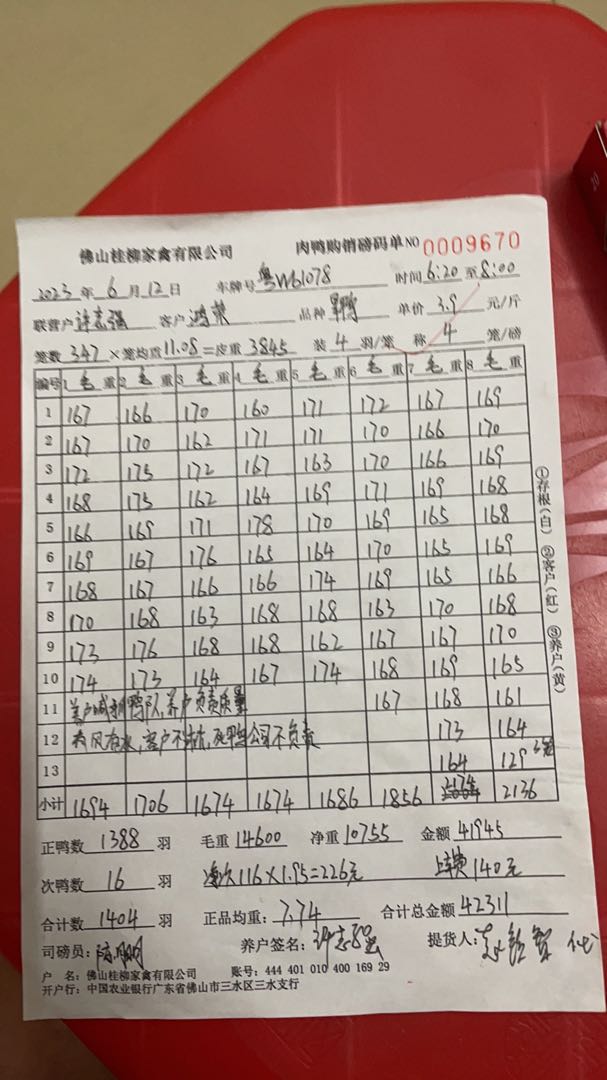 佛山桂柳家禽有限公司 肉鸭购销磅码单 NO 0009670
2023 年 6 月 12 日 车牌号 粤W61078 时间 6:20 至 8:00
联营户 许志强 客户 鸿荣 品种 单价 3.9 元/斤
笼数 347 ×笼均重 11.08 =皮重 3845 装 4 羽/笼 称 4 笼/磅
编号 1 毛 重 2 毛 重 3 毛 重 4 毛 重 5 毛 重 6 毛 重 7 毛 重 8 毛 重
1 167 166 170 160 171 172 167 169
2 167 170 162 171 171 170 166 170
3 172 175 172 167 163 170 166 169
4 168 175 162 164 169 171 169 168
5 166 169 171 178 170 169 165 168
6 169 167 176 165 164 170 165 169
7 168 167 166 166 174 169 165 166
8 170 168 163 168 168 163 170 168
9 173 176 168 168 162 167 167 170
10 174 173 164 167 174 168 169 165
11 养户喊抓鸭队,养户负责质量 167 168 161
12 有风有水,客户不 死鸭公司不负责 173 164
13 164 129 3笼
小计 1694 1706 1674 1674 1686 1856 2174 2136
①存根(白) ②客户(红) ③养户(黄)
正鸭数 1388 羽 毛重 14600 净重 10755 金额 41945
次鸭数 16 羽 次116×1.95=226元 上车费140元
合计数 1404 羽 正品均重: 7.74 合计总金额 42311
司磅员: 养户签名: 许志强 提货人: 代
户 名: 佛山桂柳家禽有限公司 账号: 444 401 010 400 169 29
开户行: 中国农业银行广东省佛山市三水区三水支行